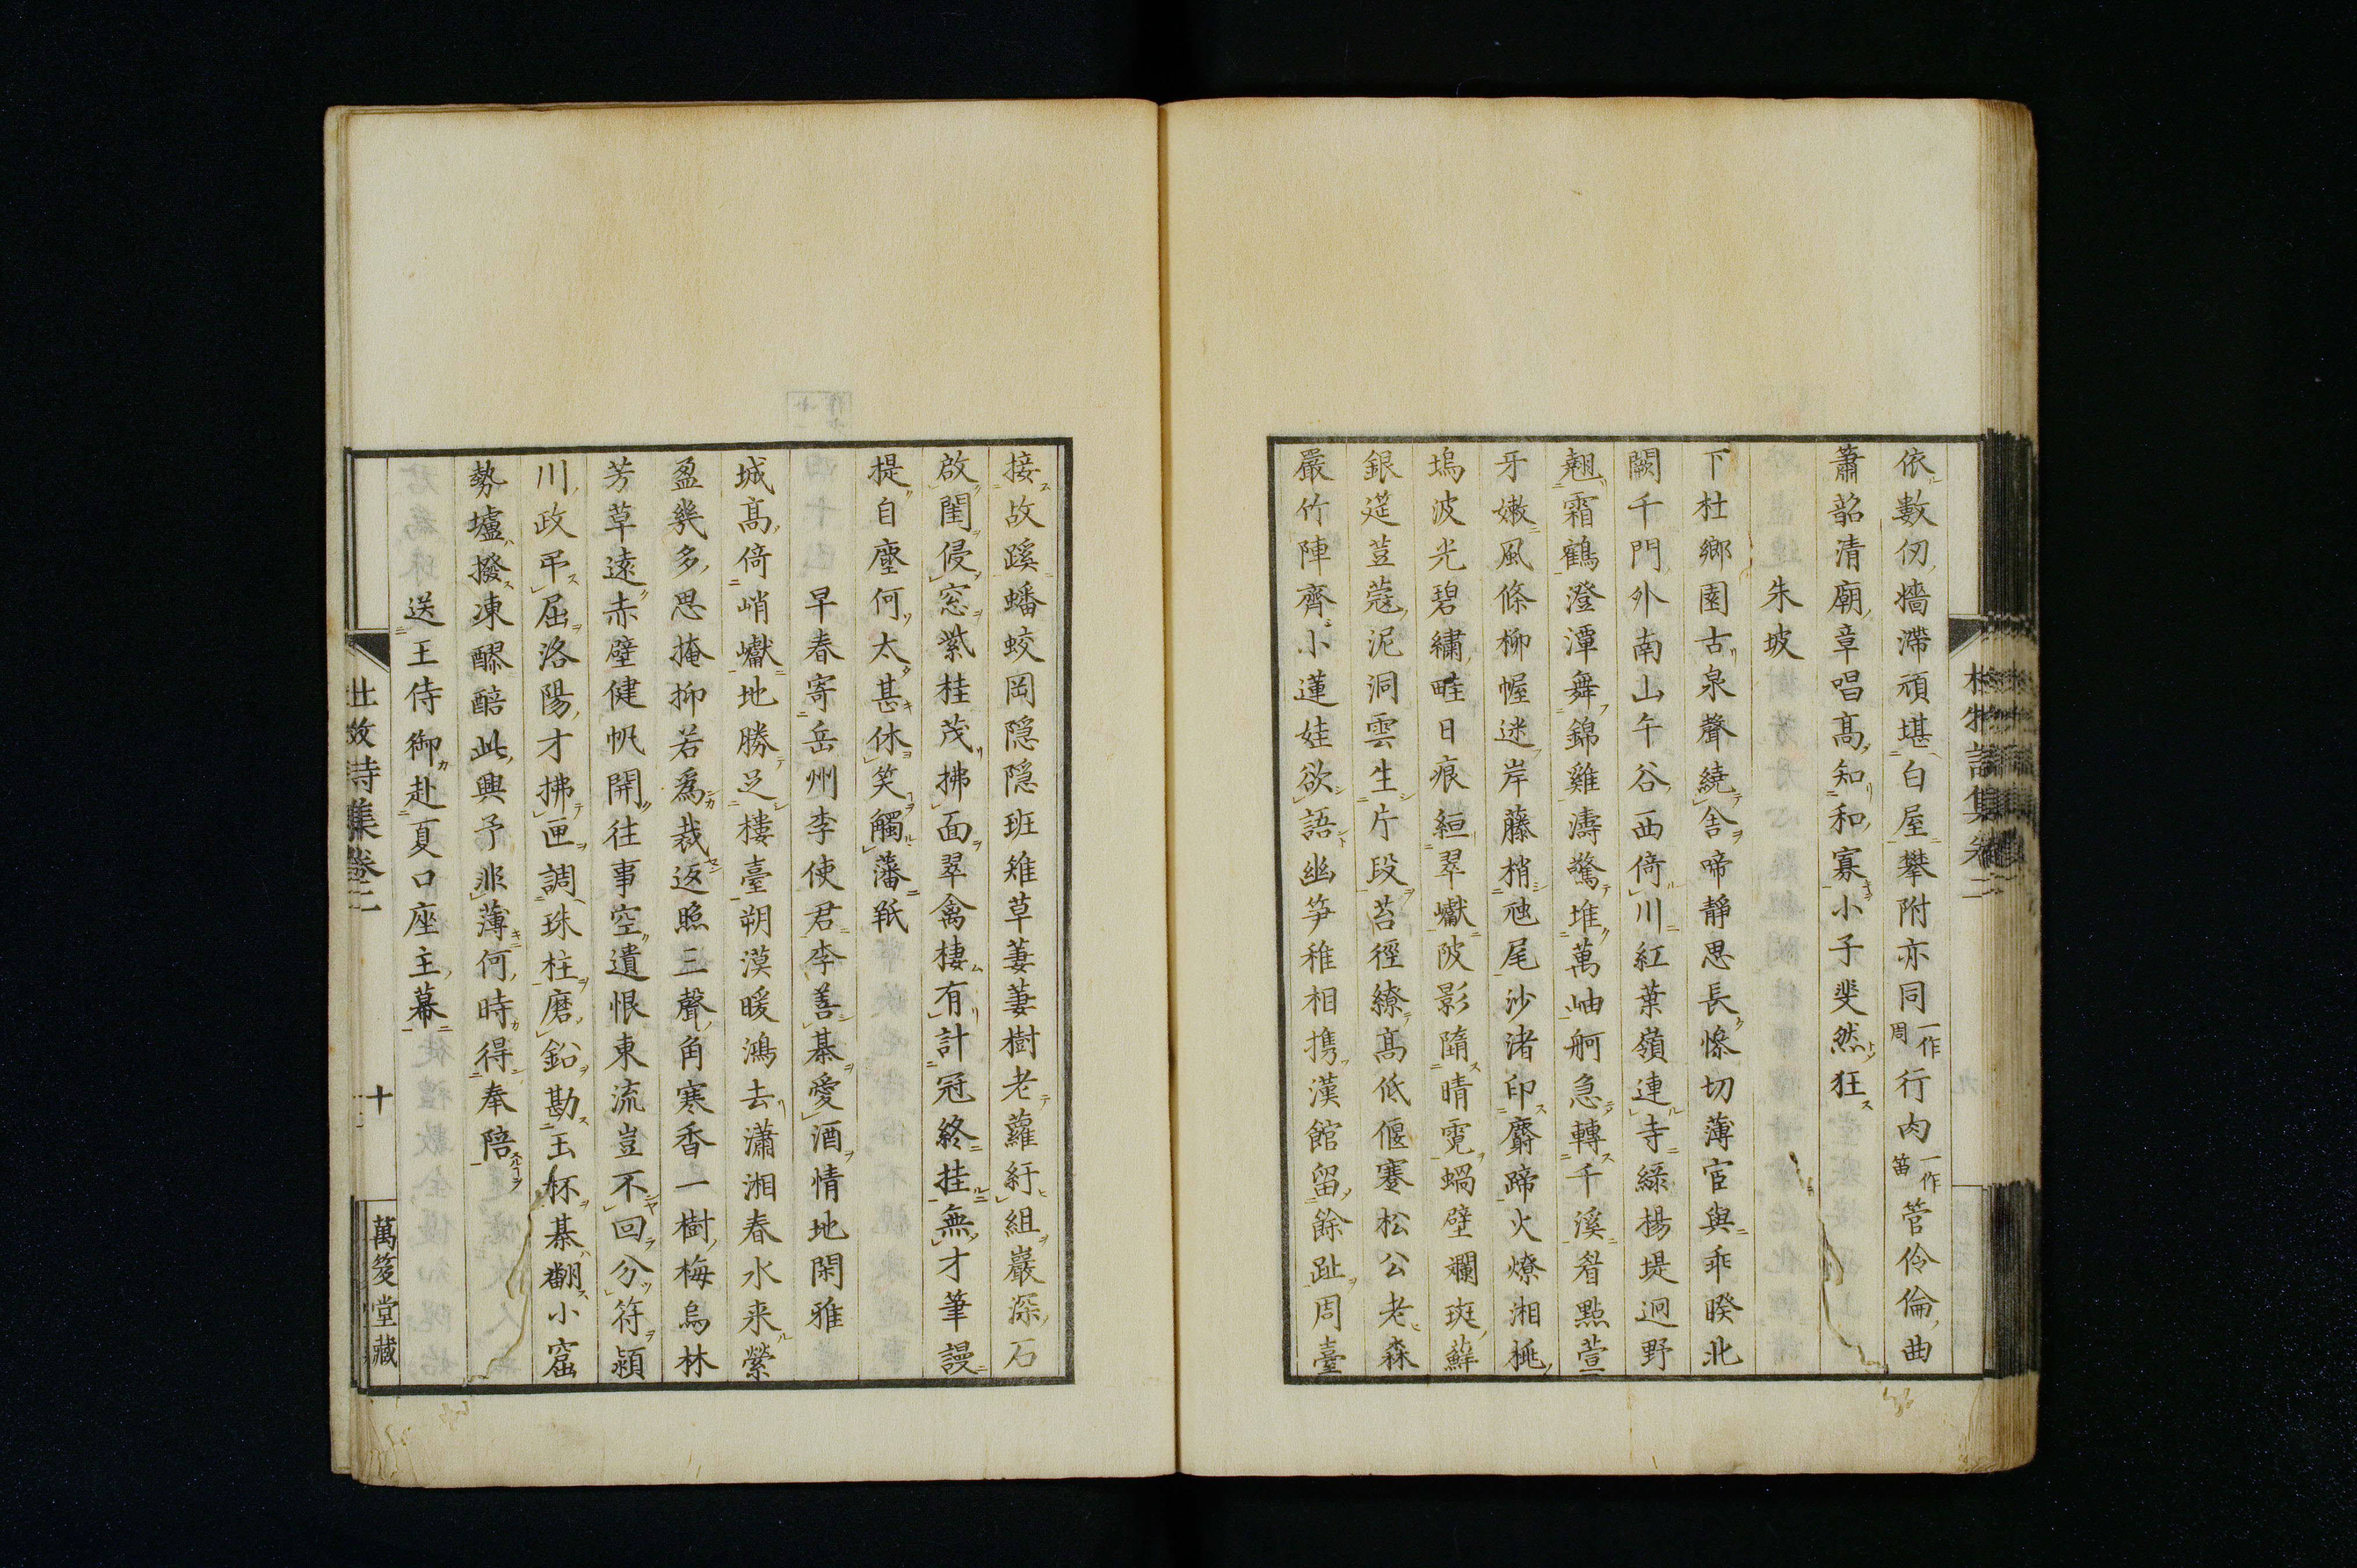 依數仞墻滯頑堪白屋攀附亦同一作周行肉一作笛管伶倫曲
蕭韶清廟章唱高知和寡小子斐然狂
朱坡
下杜鄉園古泉聲繞舍啼靜思長慘切薄宦與乖暌北
闕千門外南山午谷西倚川紅葉嶺連寺綠楊堤迥野
翹霜鶴澄潭舞錦雞濤驚堆萬岫舸急轉千溪眉點萱
牙嫩風條柳幄迷岸藤梢虺尾沙渚印麛蹄火燎湘桃
塢波光碧繡畦日痕絙翠巘陂影隋晴霓蝸壁斕斑蘚
銀筵荳蔻泥洞雲生片段苔徑繚高低偃蹇松公老森
嚴竹陣齊小蓮娃欲語幽笋稚相携漢館留餘趾周臺
接故蹊蟠蛟岡隱隱班雉草萋萋樹老蘿紆組巖深石
啟閨侵窓紫桂茂拂面翠禽棲有計冠終挂無才筆謾
提自塵何太甚休笑觸藩羝
早春寄岳州李使君李善棊愛酒情地閑雅
城高倚峭巘地勝足樓臺朔漠暖鴻去瀟湘春水来縈
盈幾多思掩抑若爲裁返照三聲角寒香一樹梅烏林
芳草遠赤壁健帆開往事空遺恨東流豈不回分符潁
川政弔屈洛陽才拂匣調珠柱磨鉛勘玉杯棊翻小窟
勢壚撥凍醪醅此興予非薄何時得奉陪
送王侍御赴夏口座主幕
杜牧詩集卷二
十
萬笈堂藏